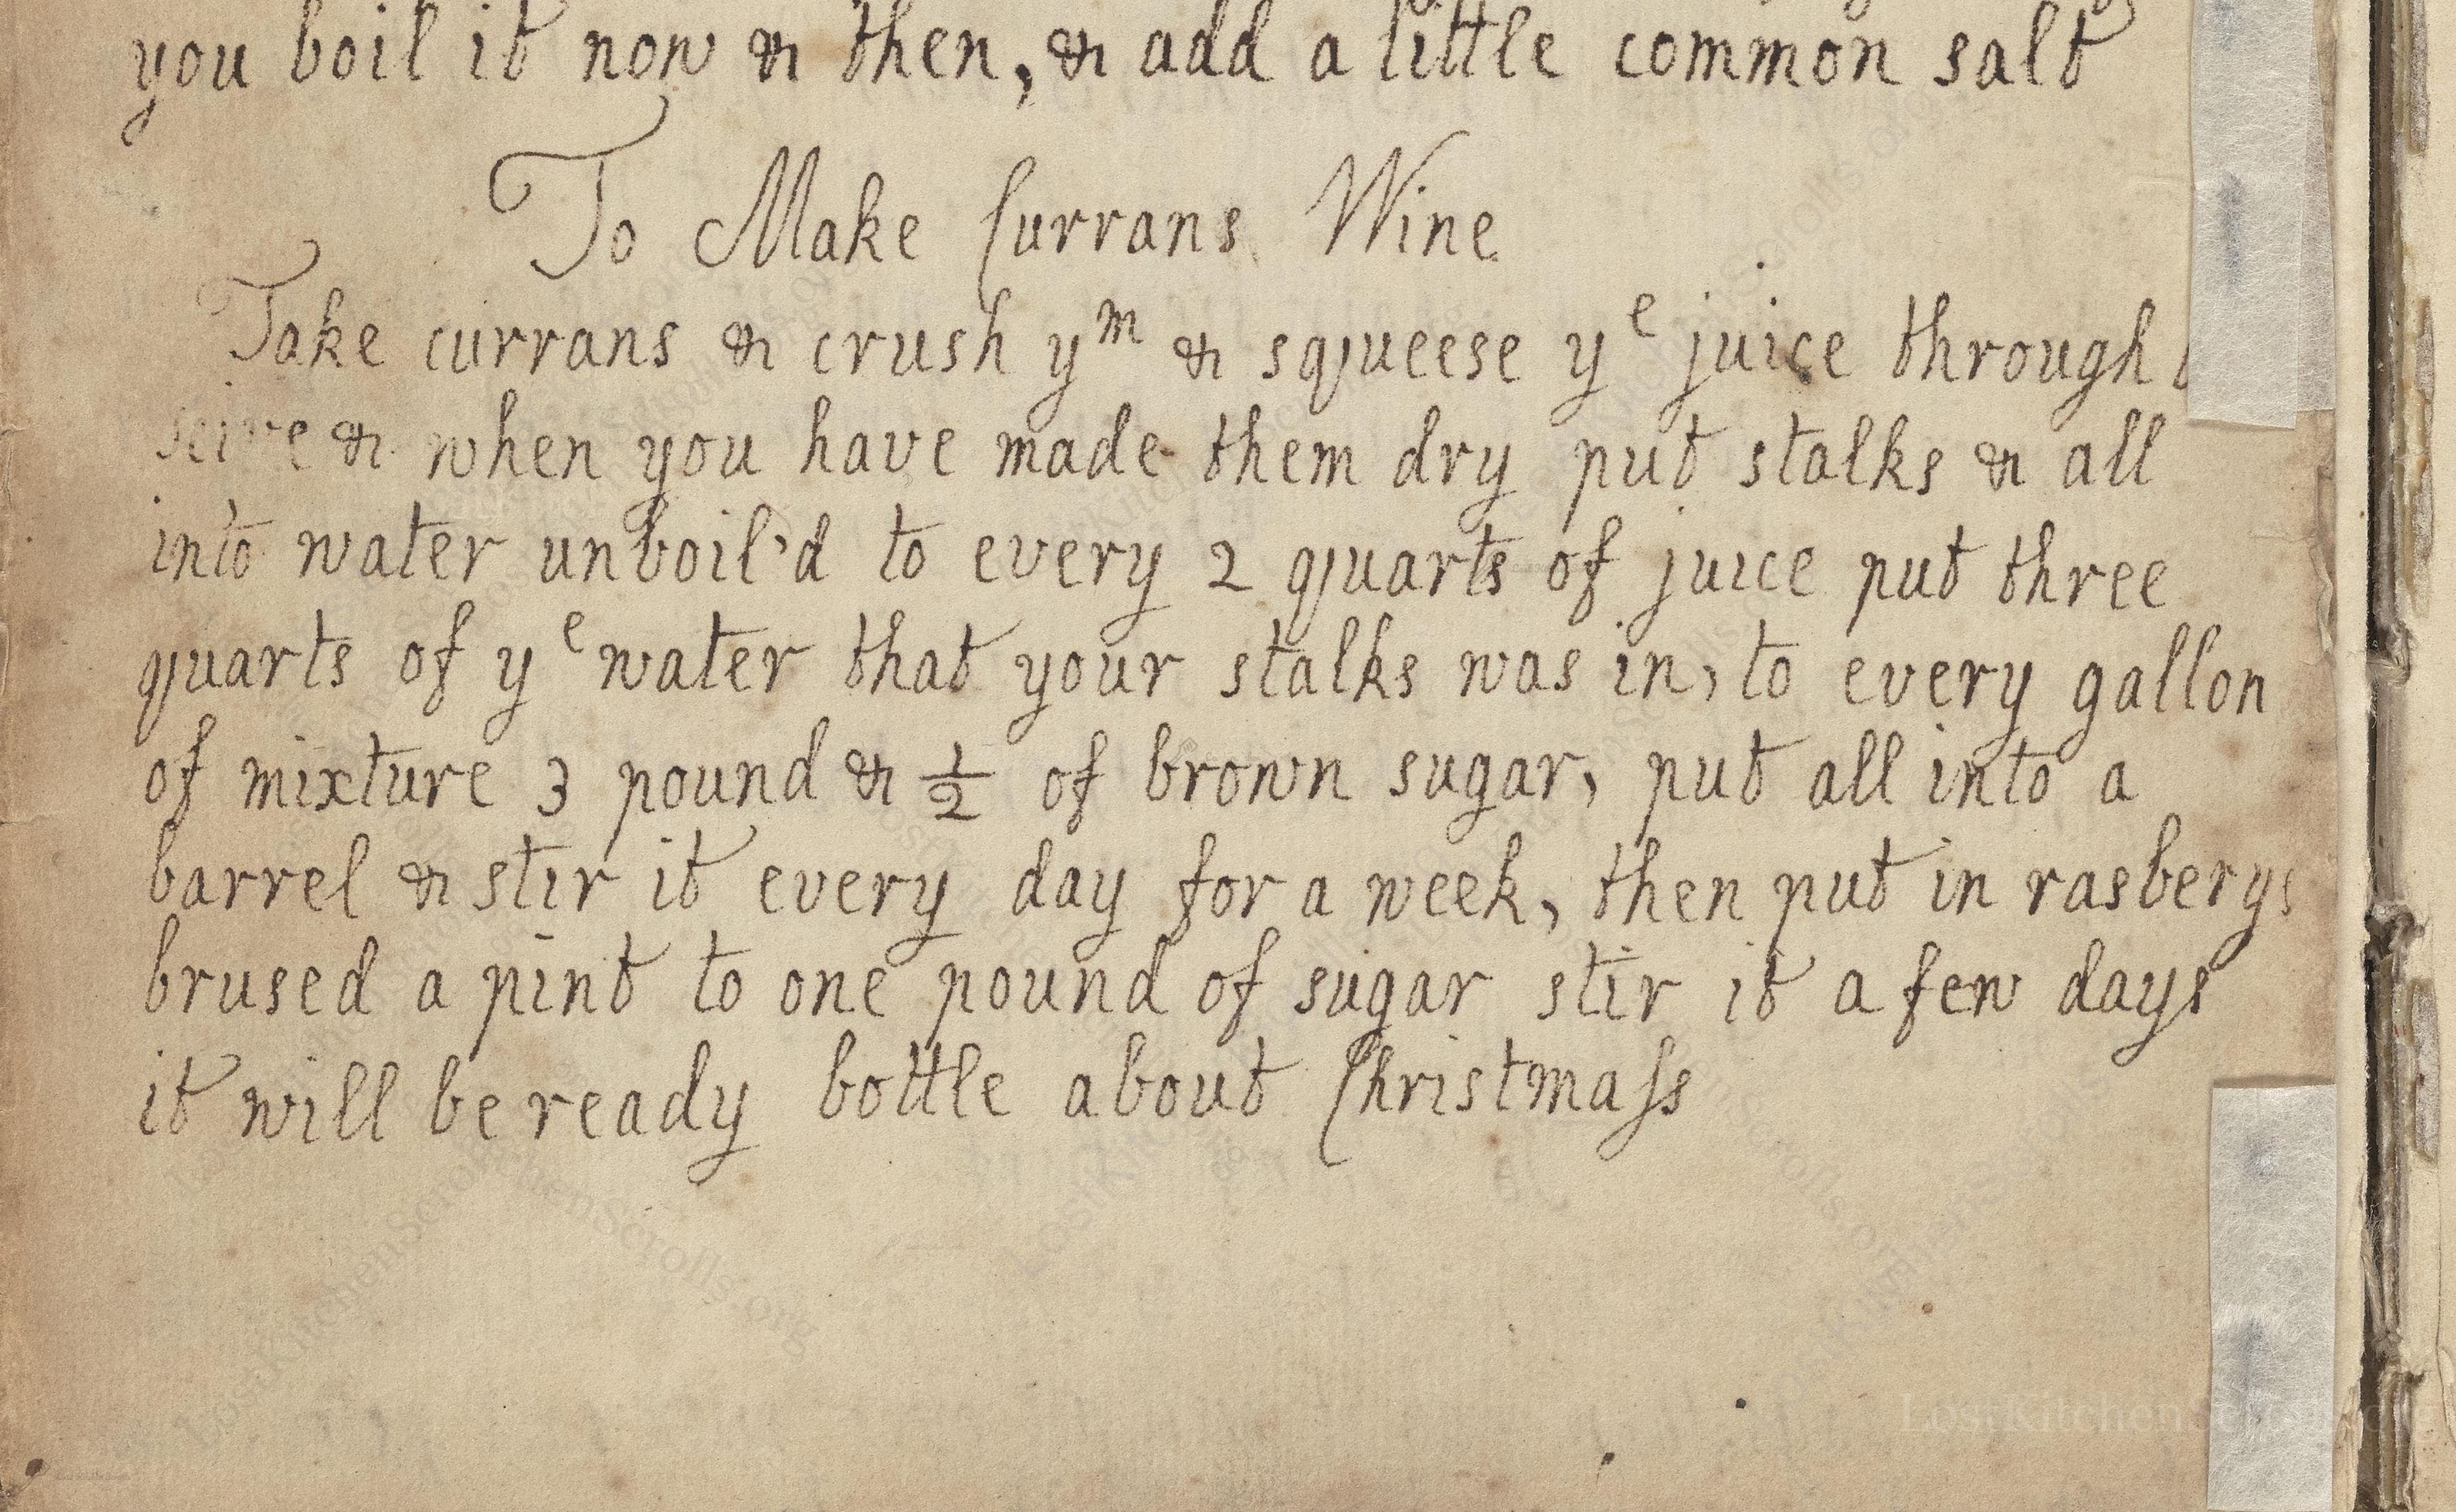 you boil it now & then, & add a little common salt
To Make Currans Wine
Take currans & crush yᵐ & squeese yᵉ juice through
seive & when you have made them dry put stalks & all
into water unboil'd to every 2 quarts of juice put three
quarts of yᵉ water that your stalks was in, to every gallon
of mixture 3 pound & ½ of brown sugar, put all into a
barrel & stir it every day for a week, then put in rasberys
brused a pint to one pound of sugar stir it a few days
it will be ready bottle about Christmaſs